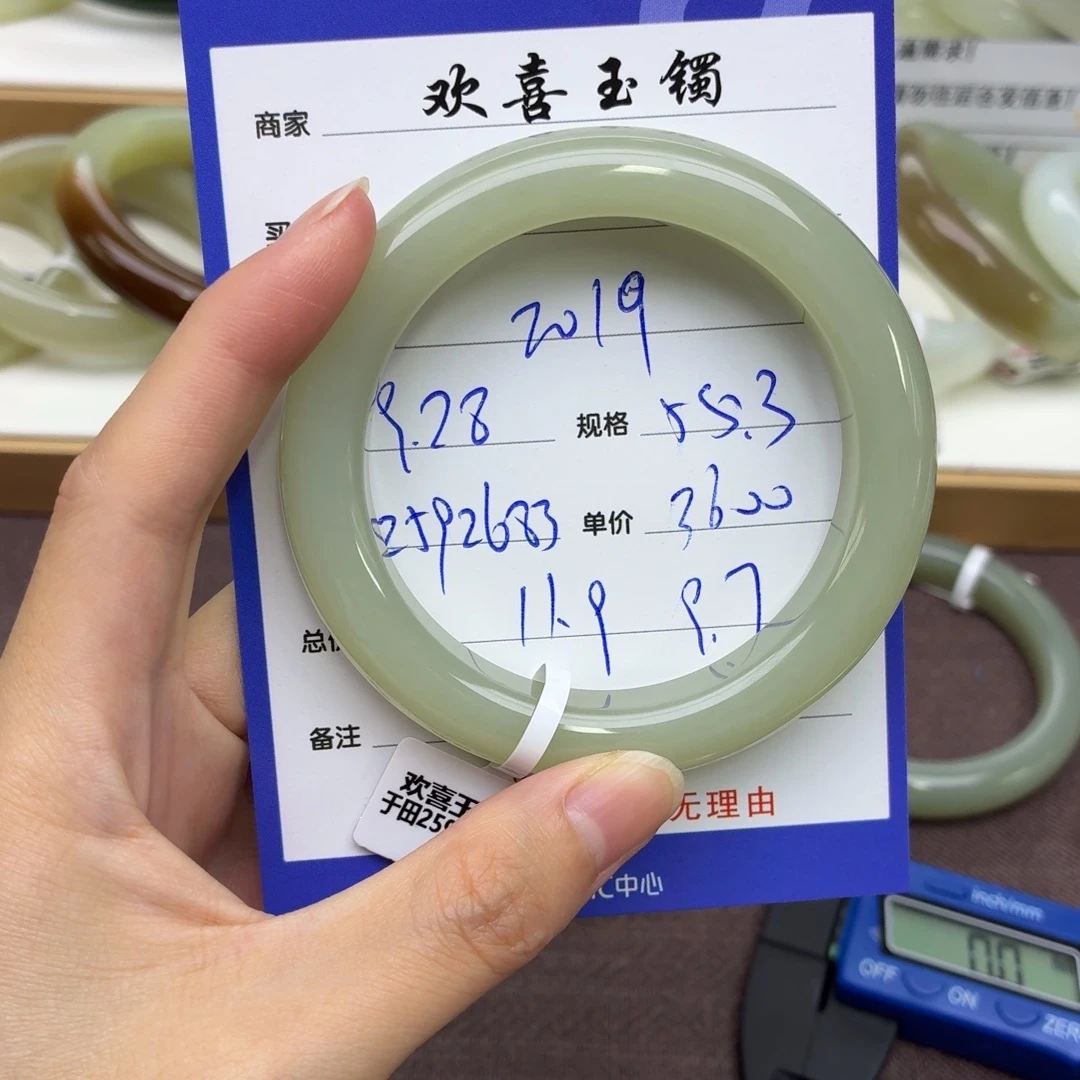 商家 欢喜玉镯
买
2019
9.28 规格 55.3
2592683 单价 3600
11.9 9.7
总价
备注
欢喜玉
于田25
无理由
汇中心
inch/mm
OFF
ON
ZER